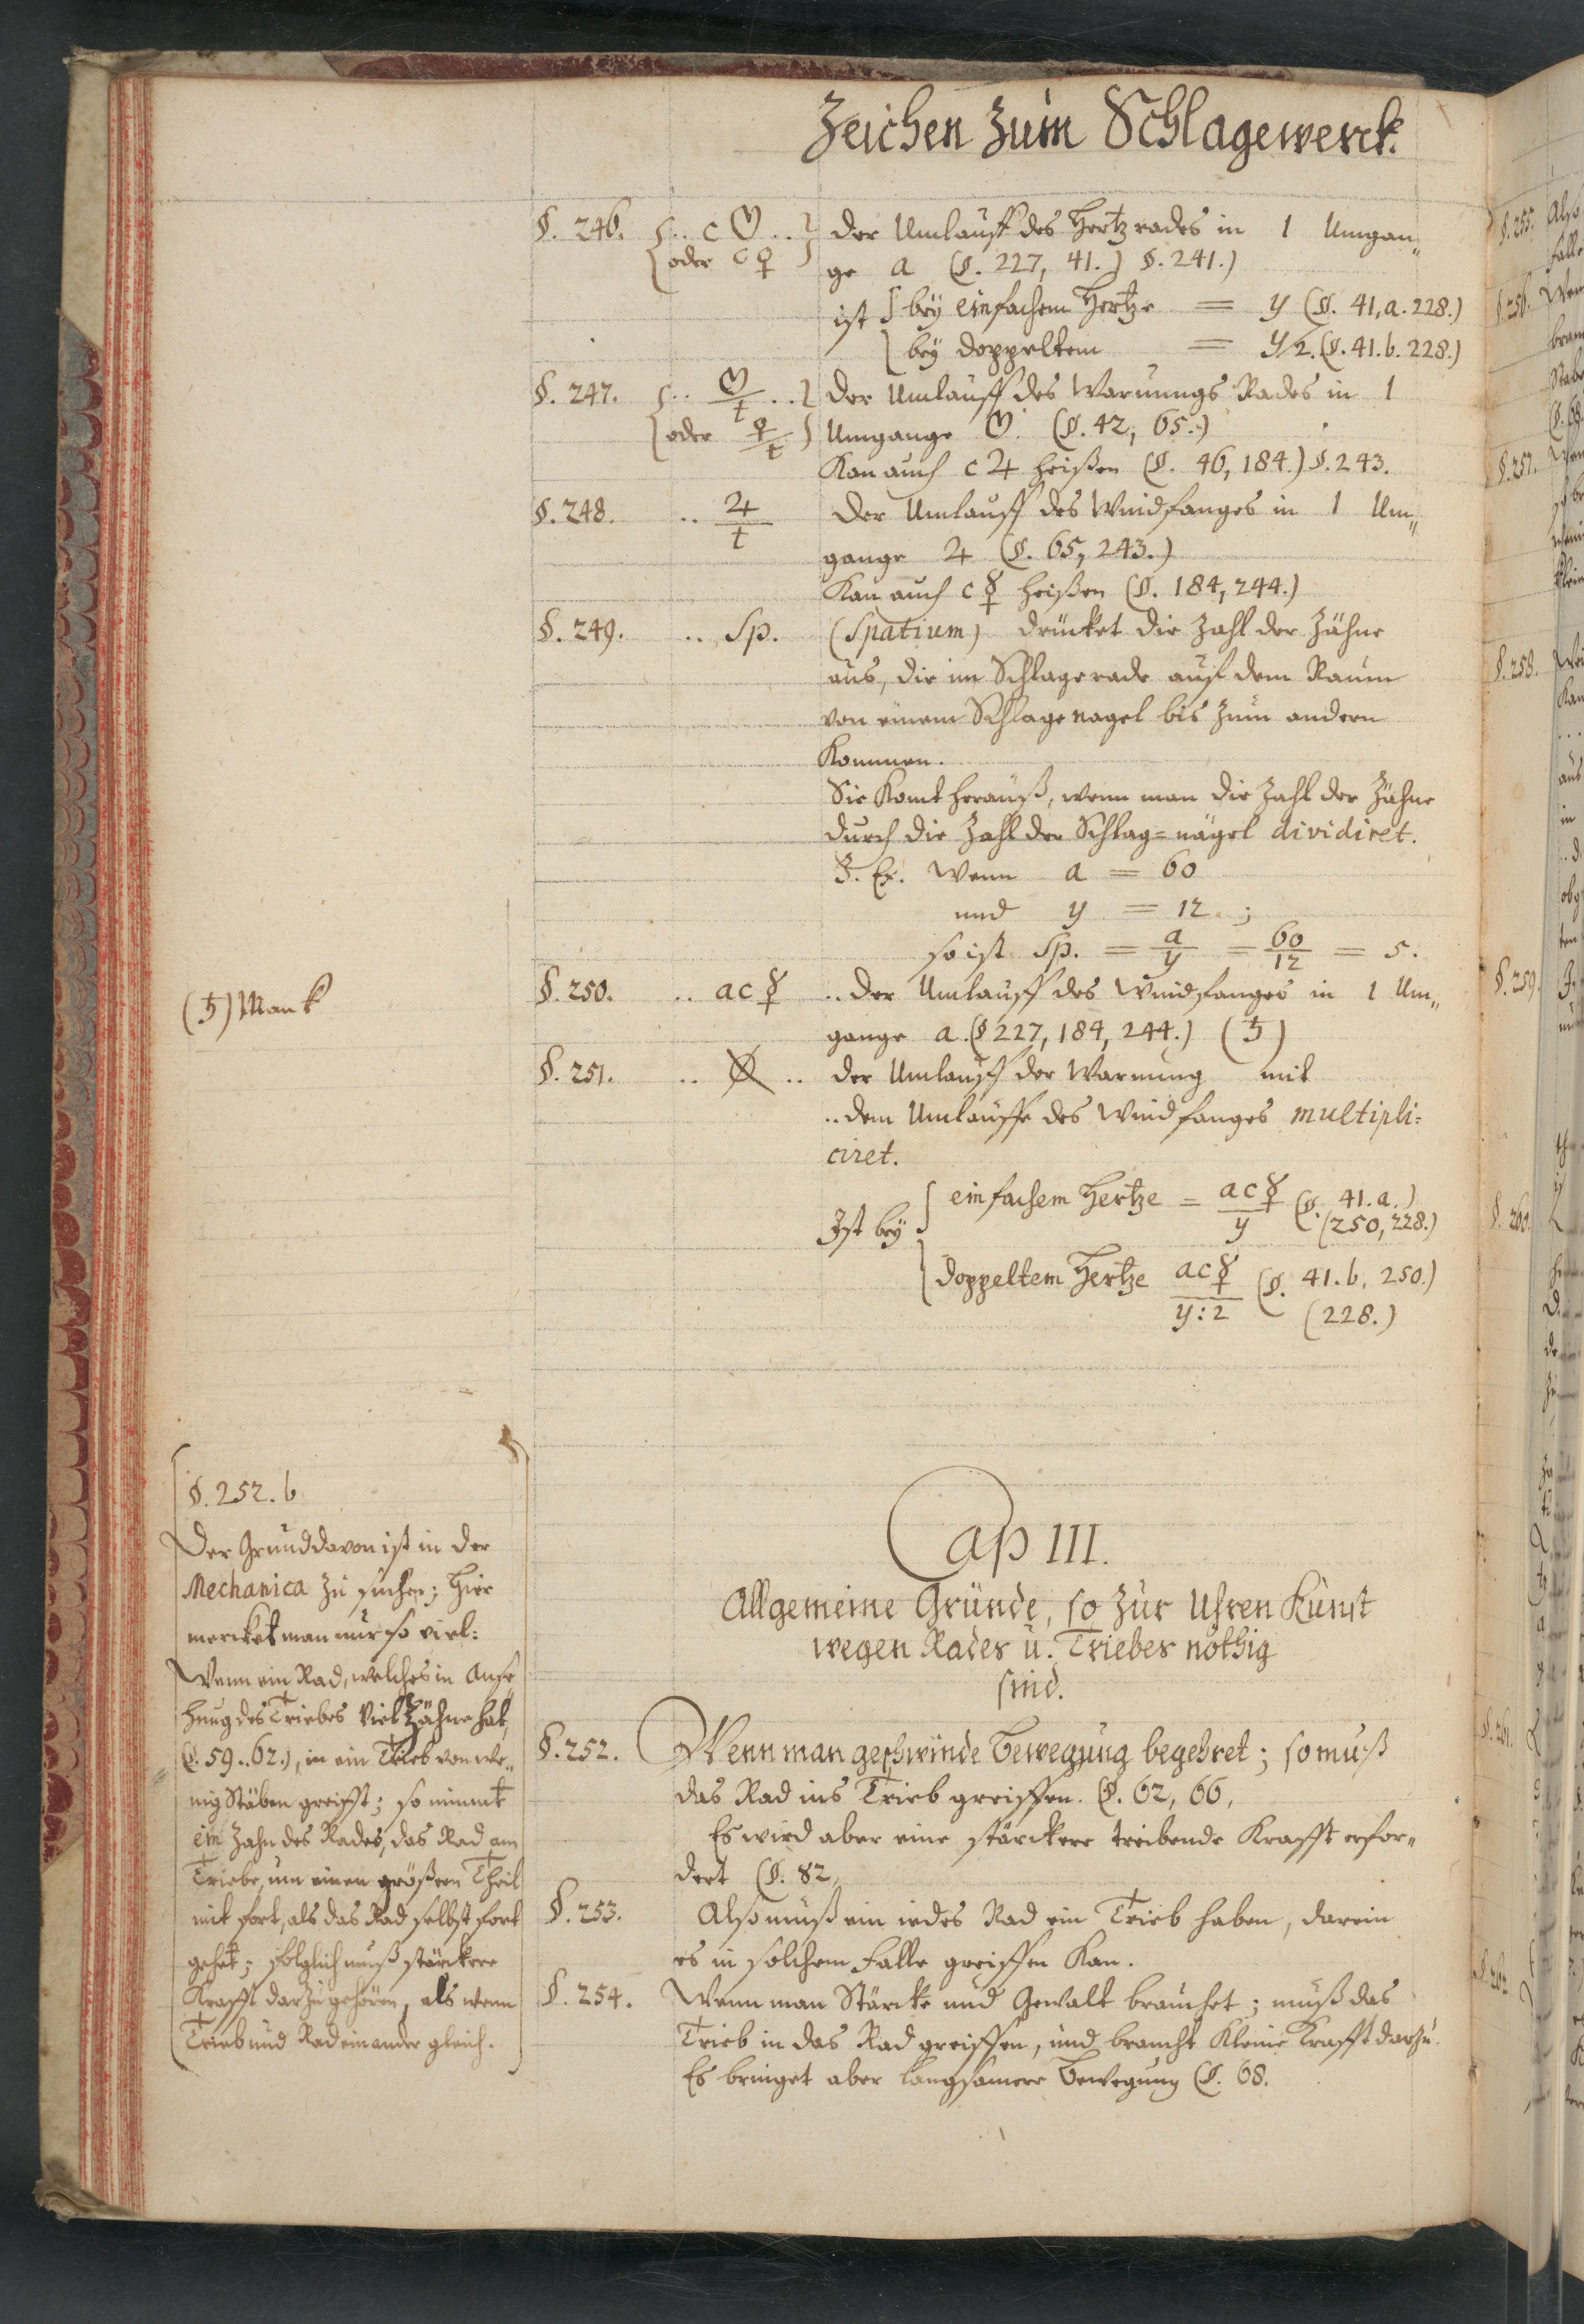 Zeichen zum Schlagewerck.
§. 246. {.. c ♡ ..} der Umlauff des Hertzrades in 1 Umgan„
{oder c ♀} ge a (§. 227, 41.) §. 241.)
ist { bey einfachem Hertze = y (§. 41, a. 228.)
{ bey doppeltem = y/2. (§. 41. b. 228.)
§. 247. {.. ♡/t ..} der Umlauff des Warnungs Rades in 1
{oder ♀/t} Umgange ♡. (§. 42, 65.)
Kan auch c ♃ heißen (§. 46, 184.) §. 243.
§. 248. .. ♃/t der Umlauff des Windfanges in 1 Um„
gange ♃ (§. 65, 243.)
Kan auch c ☿ heißen (§. 184, 244.)
§. 249. .. Sp. (Spatium) drücket die Zahl der Zähne
aus, die im Schlagerade auf dem Raum
von einem Schlagenagel bis zum andern
Kommen.
Sie komt herauß, wenn man die Zahl der Zähne
durch die Zahl der Schlag=nägel dividiret.
Z. Ex. Wenn a = 60
und y = 12. ;
so ist Sp. = a/y = 60/12 = 5.
§. 250. .. ac☿ .. der Umlauff des Windfanges in 1 Um„
gange a. (§ 227, 184, 244.) (♄)
(♄) Mank
§. 251. .. der Umlauff der Warnung mit
.. dem Umlauffe des Windfanges multipli=
ciret.
Ist bey { einfachem Hertze = ac☿/y (§. 41. a.)
(250, 228.)
{ doppeltem Hertze ac☿/y:2 (§. 41. b. 250.)
(228.)
Cap III.
Allgemeine Gründe, so zur Uhren Kunst
wegen Rades u. Triebes nöthig
sind.
§. 252. Wenn man geschwinde Bewegung begehret; so muß
das Rad ins Trieb greiffen. (§. 62, 66,
Es wird aber eine stärckere treibende Krafft erfor„
dert (§. 82,
§. 253. Also muß ein iedes Rad ein Trieb haben, darein
es in solchem Falle greiffen Kan.
§. 254. Wenn man Stärcke und Gewalt brauchet; muß das
Trieb in das Rad greiffen, und braucht kleine Krafft darzu.
Es bringet aber langsamere Bewegung (§. 68.
§. 252. b
Der Grund davon ist in der
Mechanica zu suchen; hier
mercket man nur so viel:
Wenn ein Rad, welches in Anse„
hung des Triebes viel Zähne hat,
(§. 59..62.), in ein Trieb von we„
nig Stäben greifft; so nimmt
ein Zahn des Rades, das Rad am
Triebe, um einen größern Theil
mit fort, als das Rad selbst fort
gehet; folglich muß stärckere
Krafft darzu gehören, als wenn
Trieb und Rad einander gleich.
§. 255. Also
§. 256.
§. 257.
§. 258.
§. 259.
§. 260.
§. 261.
§. 262